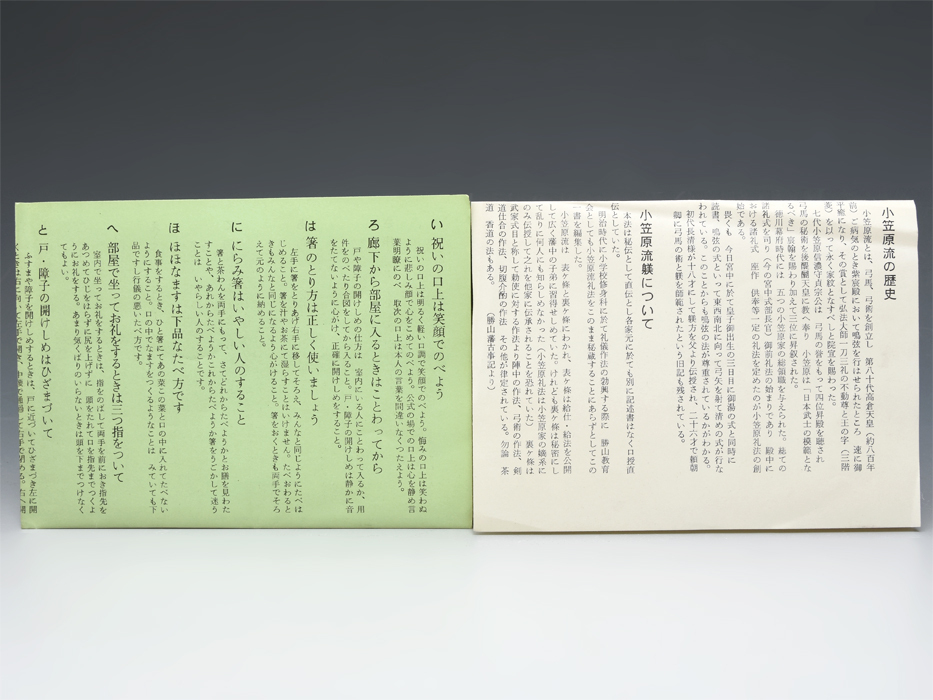 小笠原流の歴史
小笠原流とは、弓馬、弓術を創立し　第八十代高倉天皇（約八百年
前）ご病気のとき紫宸殿において鳴弦を行はせられたところ　速に御
平癒になり、その賞として弘法大師一刀三礼の不動尊と王の字（三階
菱）を以って永く家紋となすべしと院宣を賜わった。
七代小笠原信濃守貞宗公は　弓馬の誉をもって四位昇殿を聴され
弓馬の秘術を後醍醐天皇に教へ奉り　小笠原は「日本武士の模範とな
るべき」宸翰を賜わり加えて三位に昇叙された。
徳川幕府時代には　五つの小笠原家の総領職を与えられた。総ての
諸礼式を司り（今の宮中式部長官）御前礼法の始まりであり　殿中に
おける諸礼式　座作　供奉等一定の礼法を定めたのが小笠原礼法の創
始である。
畏くも　今日宮中に於て皇子御出生の三日目に御湯の式と同時に
読書、鳴弦の式といって東西南北に向って弓矢を射て清めの式が行な
われている。このことからも鳴弦の法が尊重されているかがわかる。
初代長清様が十八才にして躾方を父より伝授され、二十六才で頼朝
御の弓馬の術と躾を師範されたという旧記も残されている。
小笠原流躾について
本法は秘伝として直伝とし各家元に於ても別に記述書はなく口授直
伝としていた。
明治時代に小学校修身科に於て礼儀作法の勃興する際に　勝山教育
会としても小笠原流礼法をこのまま秘蔵することにあらずとしてこの
一書を編集した。
小笠原流は　表ヶ條と裏ヶ條にわかれ、表ヶ條は給仕・給法を公開
して広く藩中の子弟に習得せしめていた。けれども裏ヶ條は秘密にし
て乱りに何人にも知らしめなかった（小笠原礼法は小笠原家の嫡系に
のみ伝授して之れを他家に伝承されることを恐れていた）裏ヶ條は
武家式目と称して勅使に対する作法より陣中の作法、弓術の作法、剣
道仕合の作法、切腹介酌の作法　その他が律定されている。勿論　茶
道　香道の法もある。　（勝山藩古事記より）
い　祝いの口上は笑顔でのべよう
祝いの口上は明るく軽い口調で笑顔でのべよう。悔みの口上は笑わぬ
ように悲しみ顔で心をこめてのべよう。公式の場での口上は心を静め言
葉明瞭にのべ　取次の口上は本人の言葉を間違いなくつたえよう。
ろ　廊下から部屋に入るときはことわってから
戸や障子の開けしめの仕方は　室内にいる人にことわって入るか、用
件をのべたり合図をしてから入ること。戸・障子の開けしめは静かに音
をたてないように心がけ、正確に開けしめをすること。
は　箸のとり方は正しく使いましょう
左手に箸をとりあげ右手に移してそろえ、みんなと同じようにたべは
じめること。箸を汁やお茶にて湿らすことはいけません。たべおわると
きもみんなと同じになるよう心がけること。箸をおくときも両手でそろ
えて元のように納めること。
に　にらみ箸はいやしい人のすること
箸と茶わんを両手にもって、さてどれからたべようかとお膳を見わた
すことや、あれからたべようかこれからたべようか箸をうごかして迷う
ことは、いやしい人のすることです。
ほ　ほほなますは下品なたべ方です
食事をするとき、ひと箸にてあの菜この菜と口の中に入れてたべない
ようにすること。口の中でなますをつくるようなことは　みていても下
品ですし行儀の悪いたべ方です。
へ　部屋で坐ってお礼をするときは三つ指をついて
室内で坐ってお礼をするときは、指をのばして両手を前におき指先を
あつめてひじをはらずに尻を上げずに　頭をたれて口を指先までつくよ
うにお礼をする。あまり気くばりのいらないときは頭を下までつけなく
てもよい。
と　戸・障子の開けしめはひざまづいて
ふすまや障子を開けしめするときは、戸に近づいてひざまづき左に開